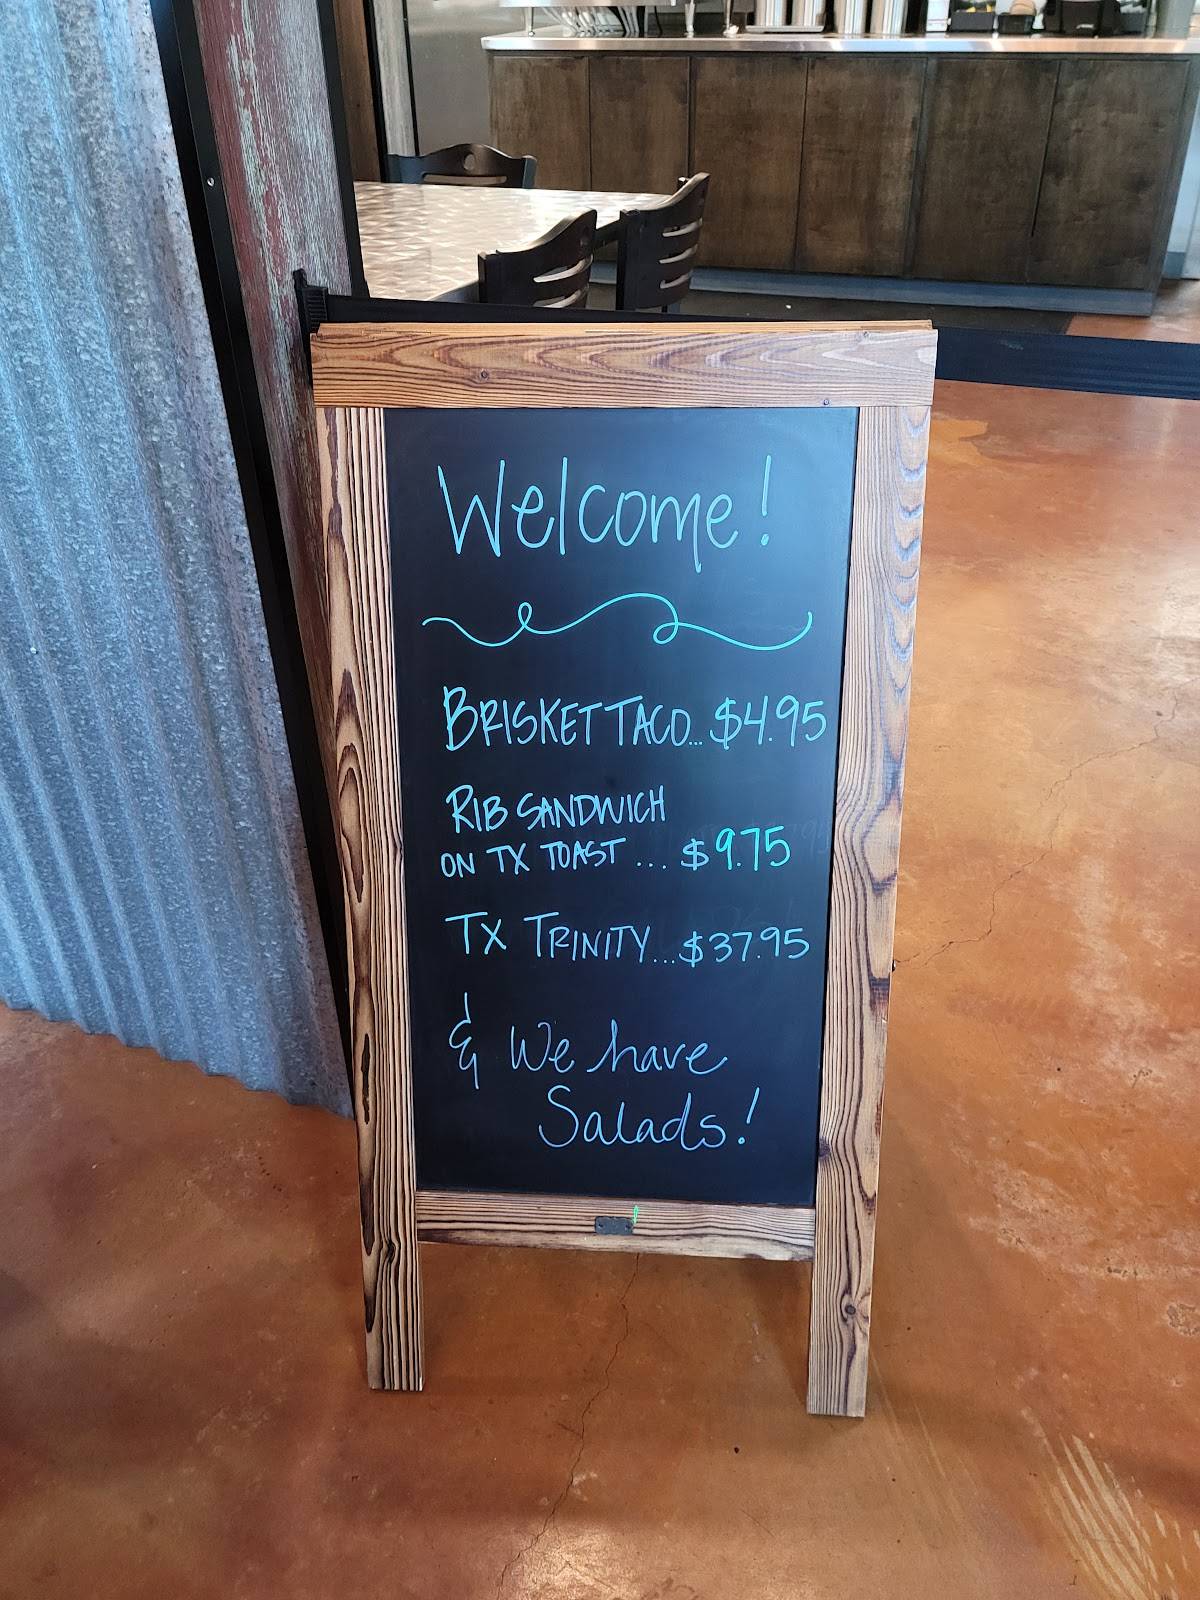 Welcome!
BRISKET TACO... $4.95
RIB SANDWICH
ON TX TOAST ... $9.75
TX TRINITY...$37.95
& We have
Salads!